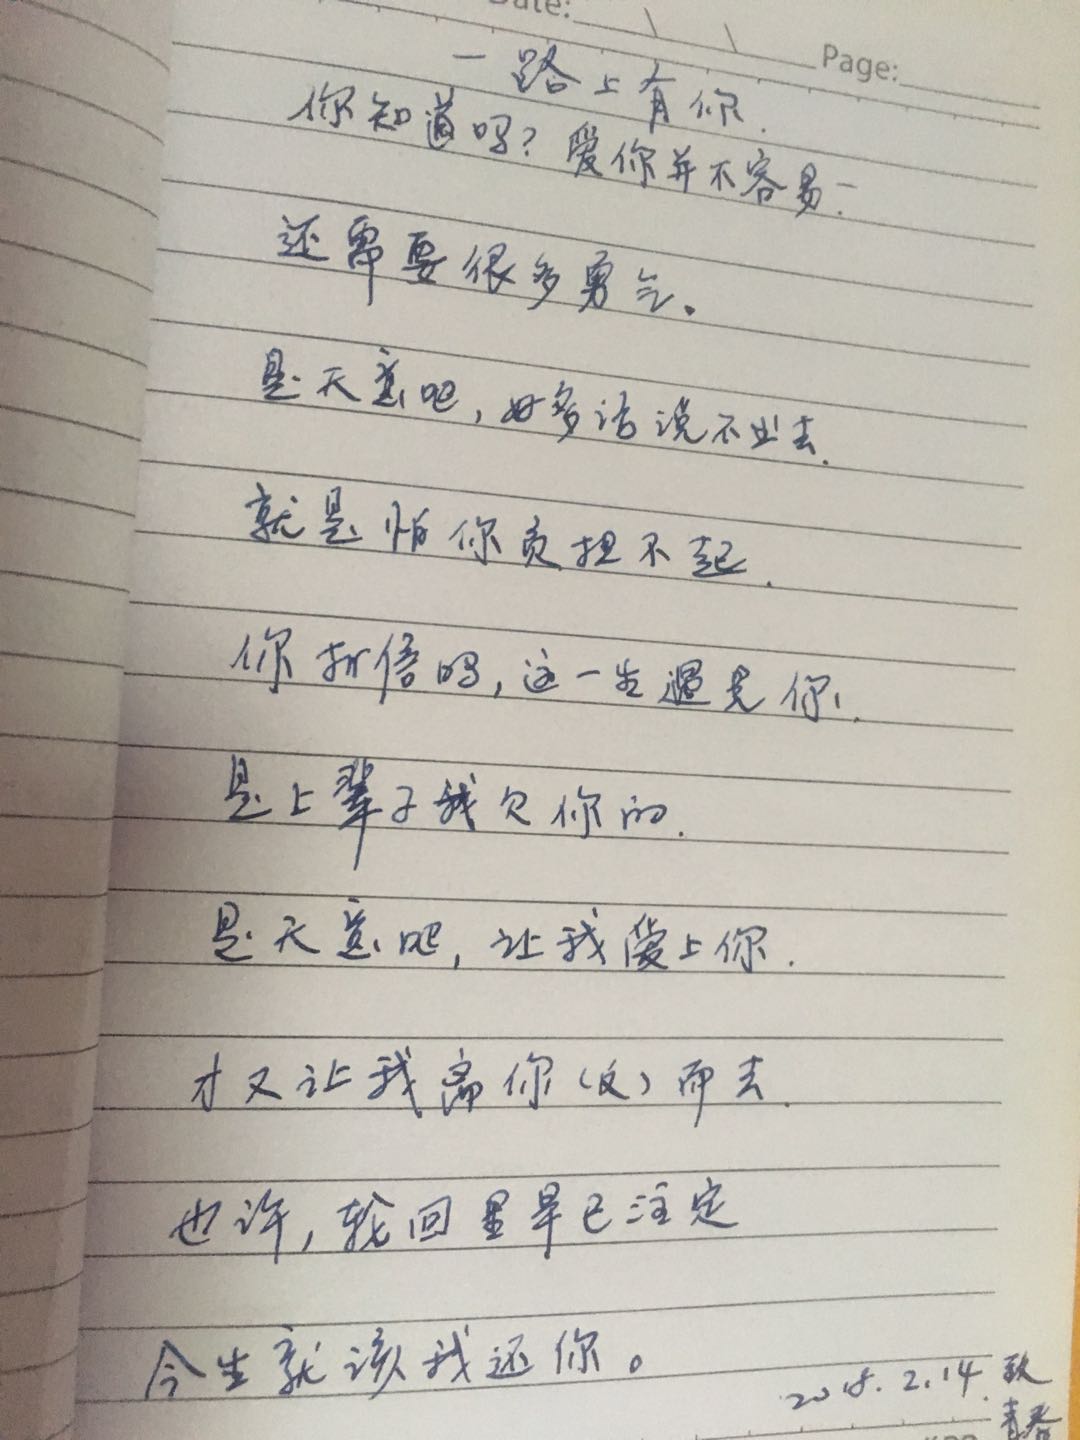 Date:
Page:
一路上有你.
你知道吗？爱你并不容易.
还需要很多勇气。
是天意吧,好多话说不出去.
就是怕你负担不起.
你相信吗,这一生遇见你.
是上辈子我欠你的.
是天意吧,让我爱上你.
才又让我离你(反)而去.
也许,轮回里早已注定
今生就该我还你。
2018.2.14
青春